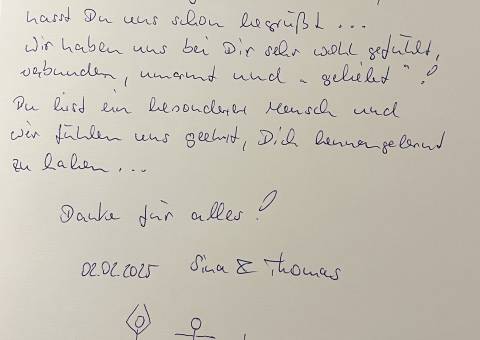 hast Du uns schon begrüßt...
Wir haben uns bei Dir sehr wohl gefühlt,
verbunden, umarmt und "geliebt"!
Du bist ein besonderer Mensch und
wir fühlen uns geehrt, Dich kennengelernt
zu haben...
Danke für alles!
02.02.2025 Sina & Thomas